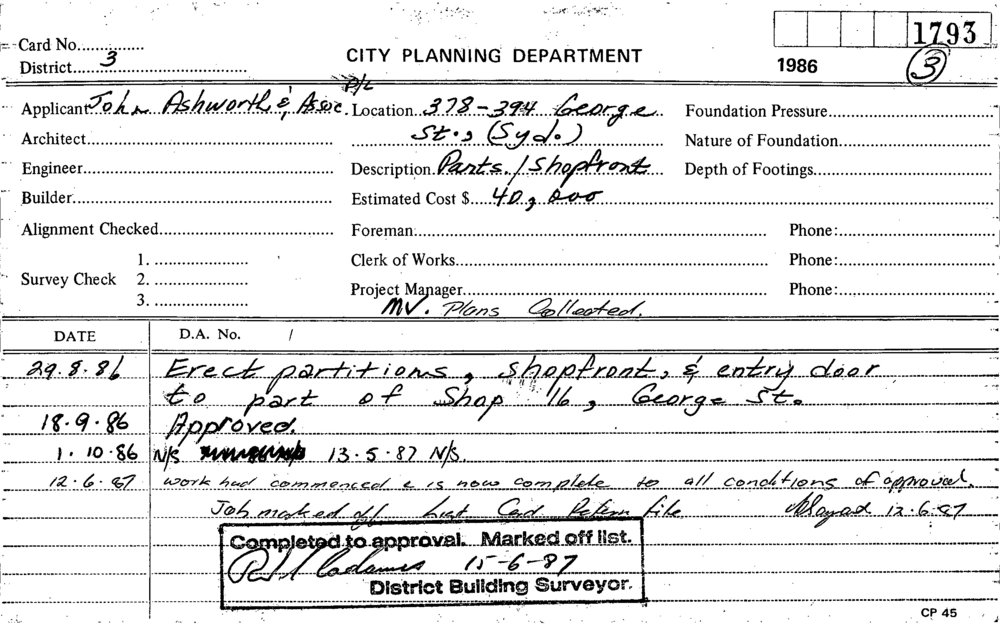 1793
Card No.
CITY PLANNING DEPARTMENT
District 3
1986
3
P/L
Applicant John Ashworth & Assoc. Location 378-394 George Foundation Pressure
Architect St., (Syd.) Nature of Foundation
Engineer Description Parts. / Shopfront Depth of Footings
Builder Estimated Cost $ 40,000
Alignment Checked Foreman Phone:
1. Clerk of Works Phone:
Survey Check 2.
Project Manager Phone:
3. MV. Plans Collected.
DATE D.A. No. /
29.8.86 Erect partitions, shopfront, & entry door
to part of Shop 16, George St.
18.9.86 Approved.
1.10.86 N/S 13.5.87 N/S.
12.6.87 work had commenced & is now complete to all conditions of approval.
Job marked off list Card Return file 12.6.87
Completed to approval. Marked off list.
15-6-87
District Building Surveyor.
CP 45